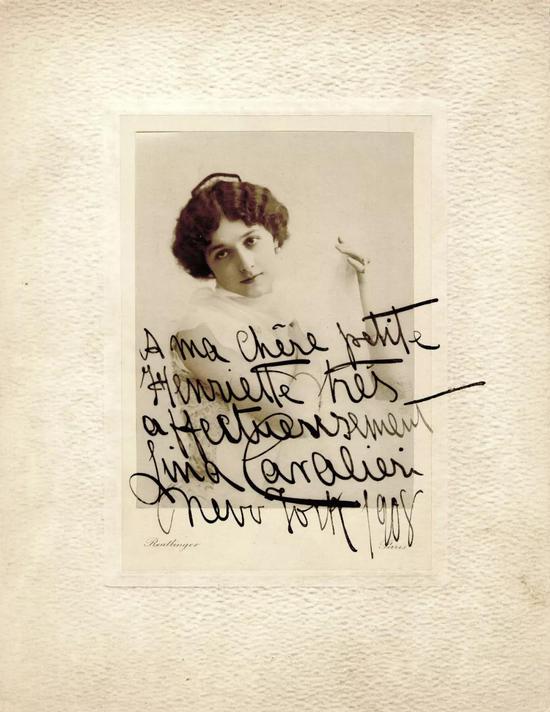 A ma chère petite
Henriette très
affectueusement
Lina Cavalieri
New York 1908
Reutlinger Paris